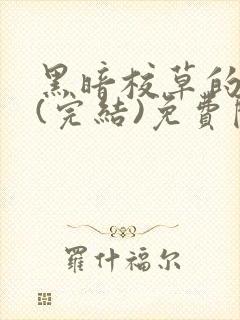 黑暗校草的
(完結)免費
羅什福尔